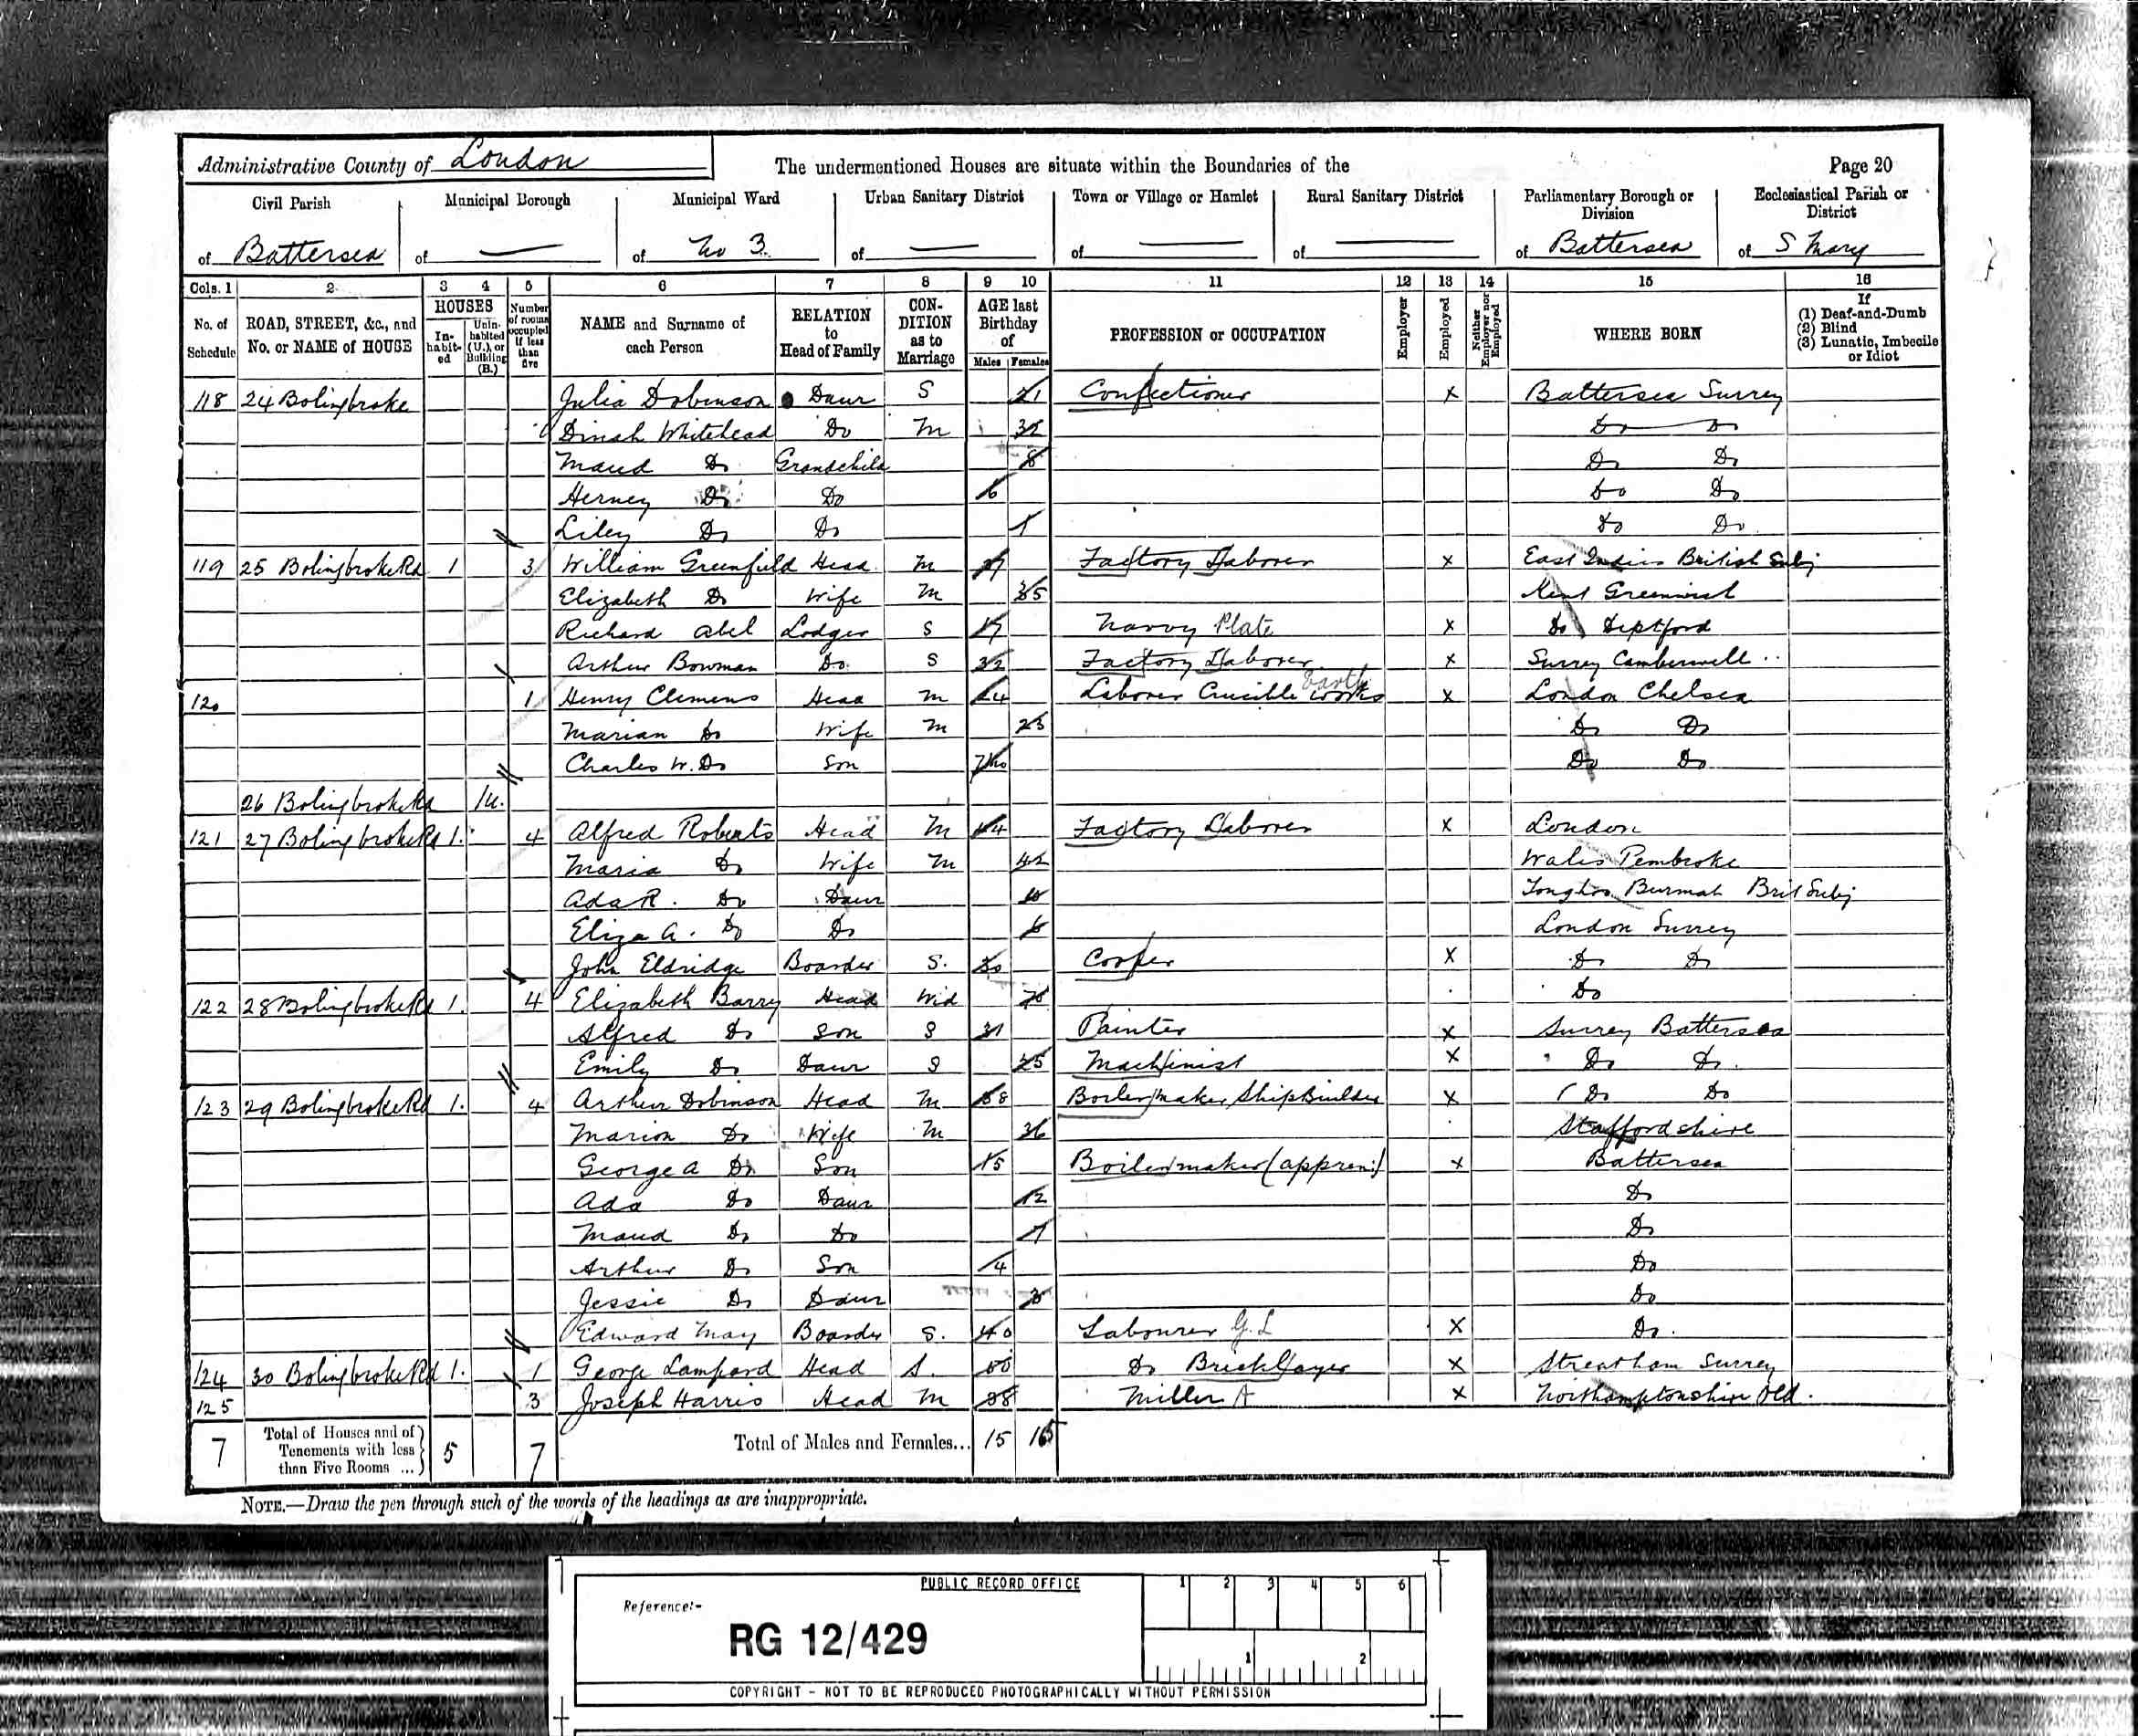 Administrative County of London
The undermentioned Houses are situate within the Boundaries of the
Page 20
Civil Parish
of Battersea
Municipal Borough
of —
Municipal Ward
of No 3.
Urban Sanitary District
of —
Town or Village or Hamlet
of —
Rural Sanitary District
of —
Parliamentary Borough or Division
of Battersea
Ecclesiastical Parish or District
of S Mary
Cols. 1 2 3 4 5 6 7 8 9 10 11 12 13 14 15 16
No. of Schedule
ROAD, STREET, &c., and No. or NAME of HOUSE
HOUSES
In-habit-ed
Unin-habited (U.), or Building (B.)
Number of rooms occupied if less than five
NAME and Surname of each Person
RELATION to Head of Family
CON-DITION as to Marriage
AGE last Birthday of
Males Females
PROFESSION or OCCUPATION
Employer
Employed
Neither Employer nor Employed
WHERE BORN
If
(1) Deaf-and-Dumb
(2) Blind
(3) Lunatic, Imbecile or Idiot
118 24 Bolingbroke Julia Dobinson Daur S 21 Confectioner X Battersea Surrey
Dinah Whitehead Do M 32 Do Do
Maud Do Grandchild 8 Do Do
Herney Do Do 6 Do Do
Liley Do Do 1 Do Do
119 25 Bolingbroke Rd 1 3 William Greenfield Head M Factory Laborer X East Indies British Subj
Elizabeth Do Wife M 35 Kent Greenwich
Richard Abel Lodger S 19 Navvy Plate X Do Deptford
Arthur Bowman Do S 32 Factory Laborer X Surrey Camberwell
120 1 Henry Clemens Head M 24 Laborer Crucible Works Earth X London Chelsea
Marian Do Wife M 23 Do Do
Charles W. Do Son 7mo Do Do
26 Bolingbroke Rd 1u.
121 27 Bolingbroke Rd 1. 4 Alfred Roberts Head M 44 Factory Laborer X London
Maria Do Wife M 42 Wales Pembroke
Ada R. Do Daur 10 Tonghoo Burmah Brit Subj
Eliza A. Do Do 6 London Surrey
John Eldridge Boarder S. 20 Cooper X Do Do
122 28 Bolingbroke Rd 1. 4 Elizabeth Barry Head Wid 70 Do
Alfred Do Son S 31 Painter X Surrey Battersea
Emily Do Daur S 25 Machinist X Do Do
123 29 Bolingbroke Rd 1. 4 Arthur Dobinson Head M 38 Boiler maker Ship Builder X Do Do
Marion Do Wife M 36 Staffordshire
George A Do Son 15 Boiler maker (appren:) X Battersea
Ada Do Daur 12 Do
Maud Do Do 7 Do
Arthur Do Son 4 Do
Jessie Do Daur 3 Do
Edward May Boarder S. 40 Labourer G. L X Do.
124 30 Bolingbroke Rd 1. 1 George Lampard Head S. 50 Do Bricklayer X Streatham Surrey
125 3 Joseph Harris Head M 38 Miller A X Northamptonshire Old.
7 Total of Houses and of Tenements with less than Five Rooms ... 5 7 Total of Males and Females... 15 16
NOTE.—Draw the pen through such of the words of the headings as are inappropriate.
PUBLIC RECORD OFFICE
1 2 3 4 5 6
Reference:-
RG 12/429
1 2
COPYRIGHT - NOT TO BE REPRODUCED PHOTOGRAPHICALLY WITHOUT PERMISSION